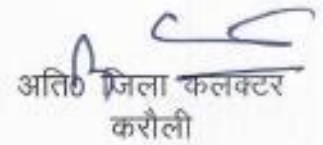 अति० जिला कलक्टर
करौली